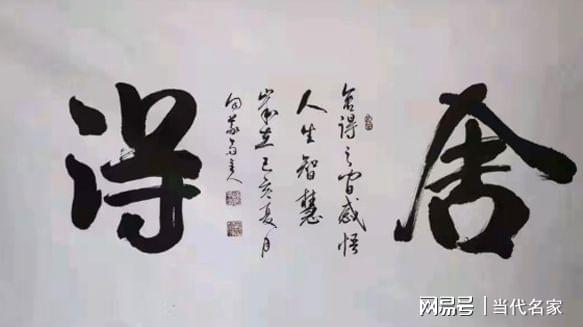 舍得
舍得之间感悟
人生智慧
岁在己亥夏月
主人
网易号 | 当代名家